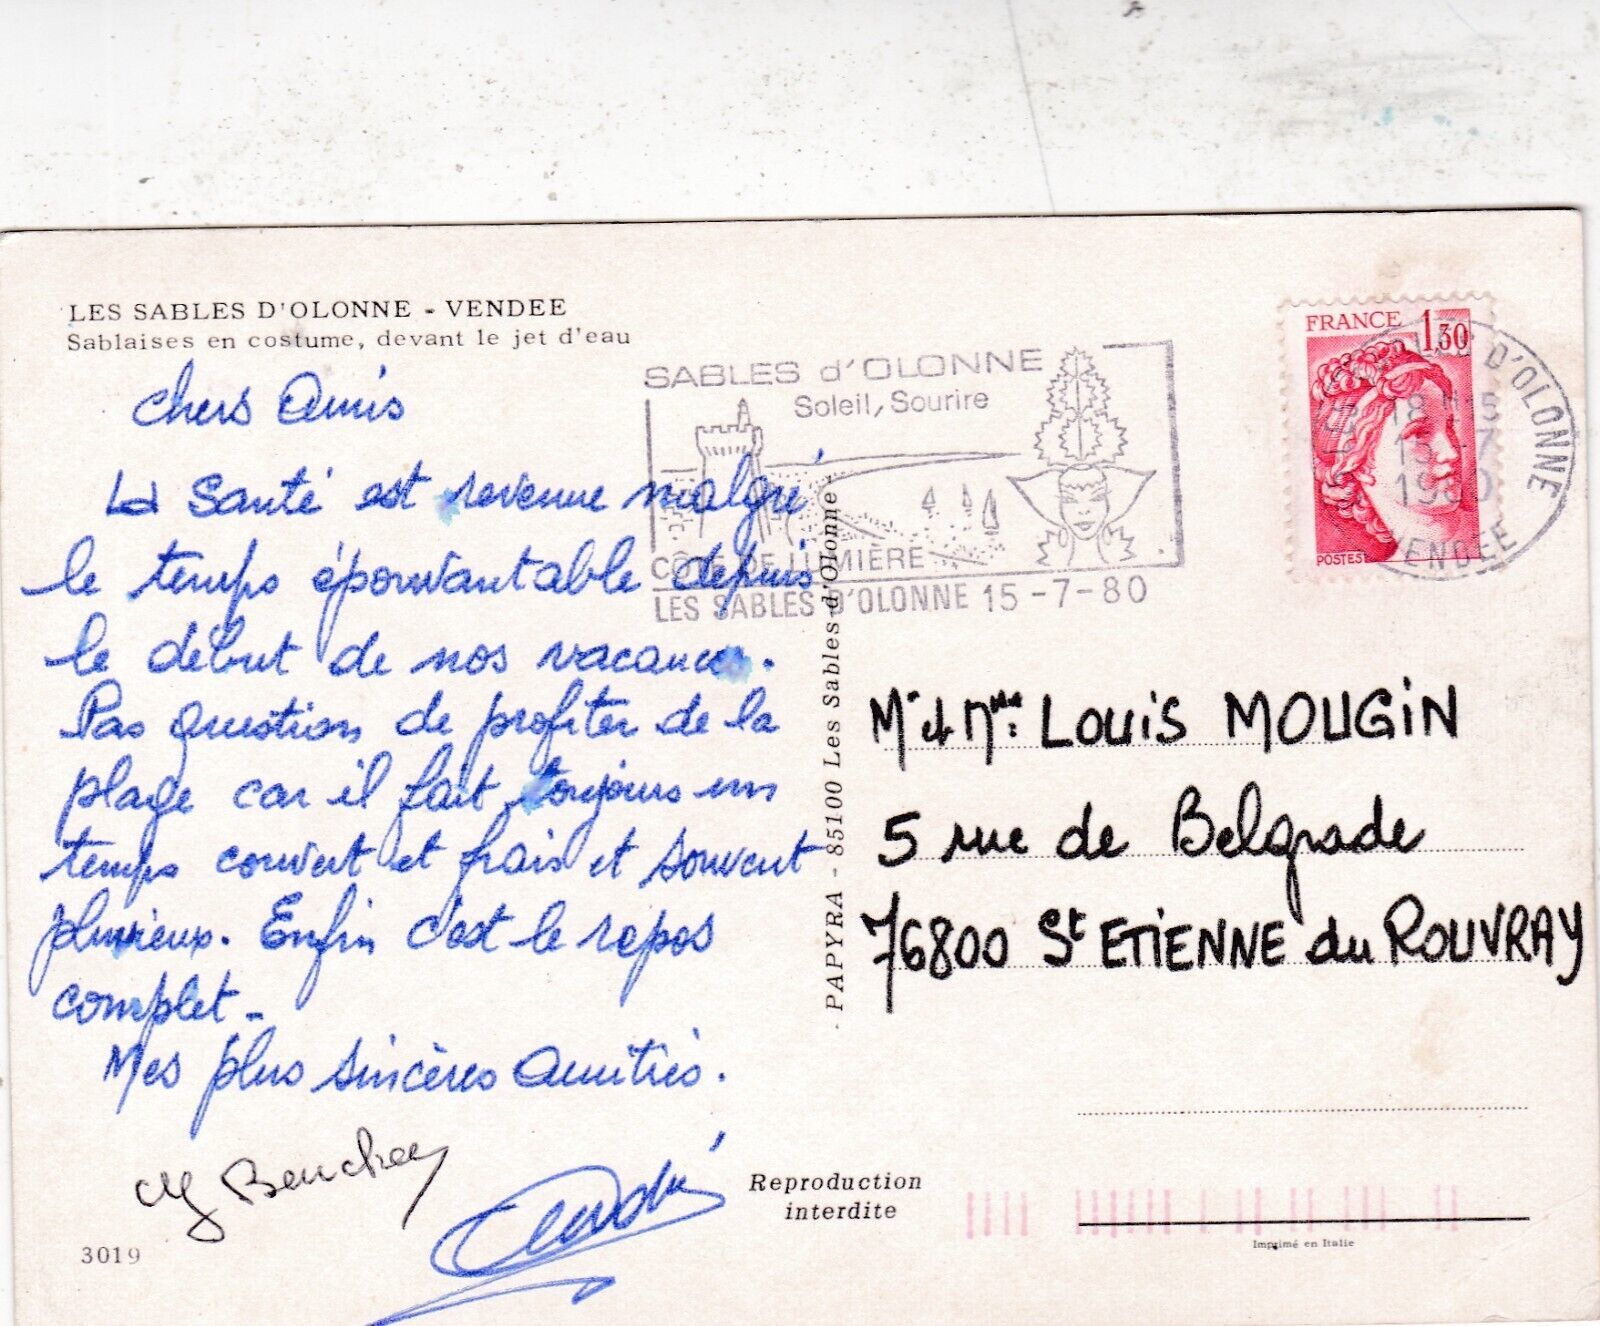 LES SABLES D'OLONNE - VENDEE
Sablaises en costume, devant le jet d'eau
Chers Amis
La Santé est revenue malgré
le temps épouvantable depuis
le début de nos vacances.
Pas question de profiter de la
plage car il fait toujours un
temps couvert et frais et souvent
pluvieux. Enfin c'est le repos
complet -
Mes plus sincères Amitiés.
André
3019
SABLES d'OLONNE
Soleil, Sourire
CÔTE DE LUMIÈRE
LES SABLES D'OLONNE 15-7-80
FRANCE 1,30
POSTES
D'OLONNE
18H15
15-7
1980
VENDEE
PAPYRA - 85100 Les Sables d'Olonne -
Mr et Mme LOUiS MOUGiN
5 rue de Belgrade
76800 St ETiENNE du ROUVRAY
Reproduction
interdite
Imprimé en Italie